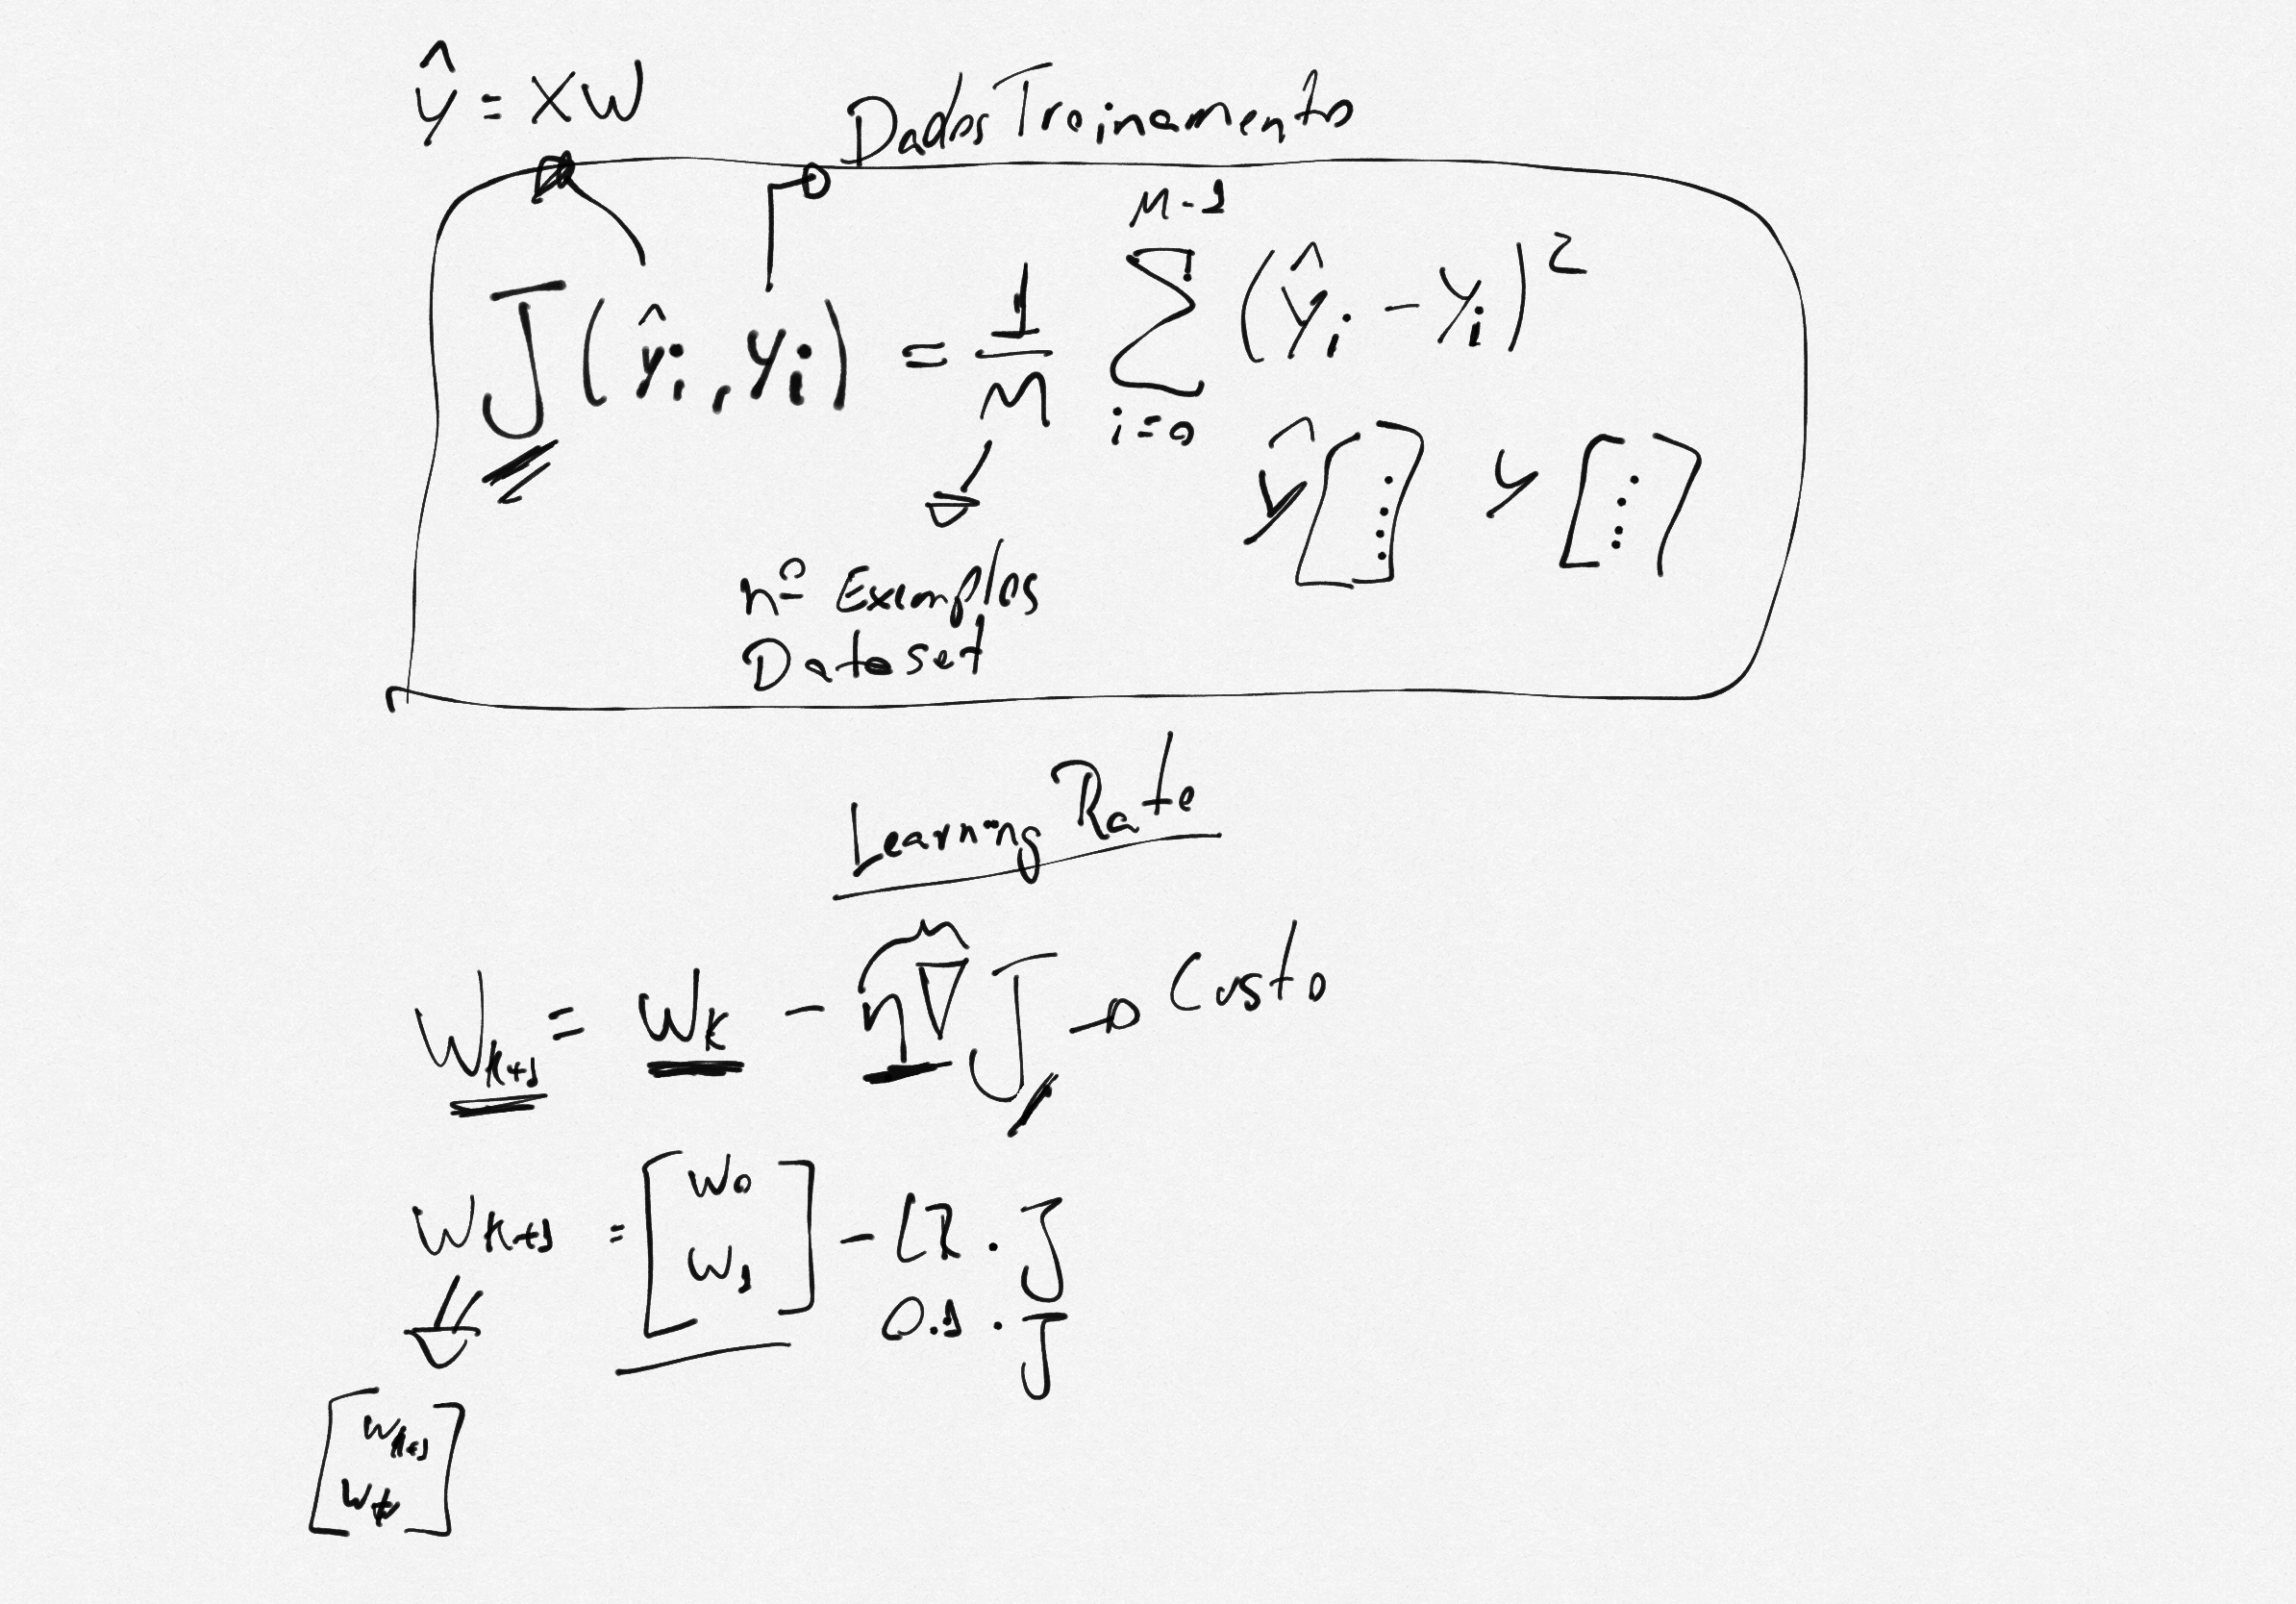 ŷ = XW
Dados Treinamento
J(ŷi, yi) = 1/M Σ (i=0, M-1) (ŷi - yi)²
ŷ [⋮] y [⋮]
nº Exemplos
Dataset
Learning Rate
W_{k+1} = W_k - η∇J → Custo
W_{k+1} = [W_0 W_1] - LR . J
0.1 . J